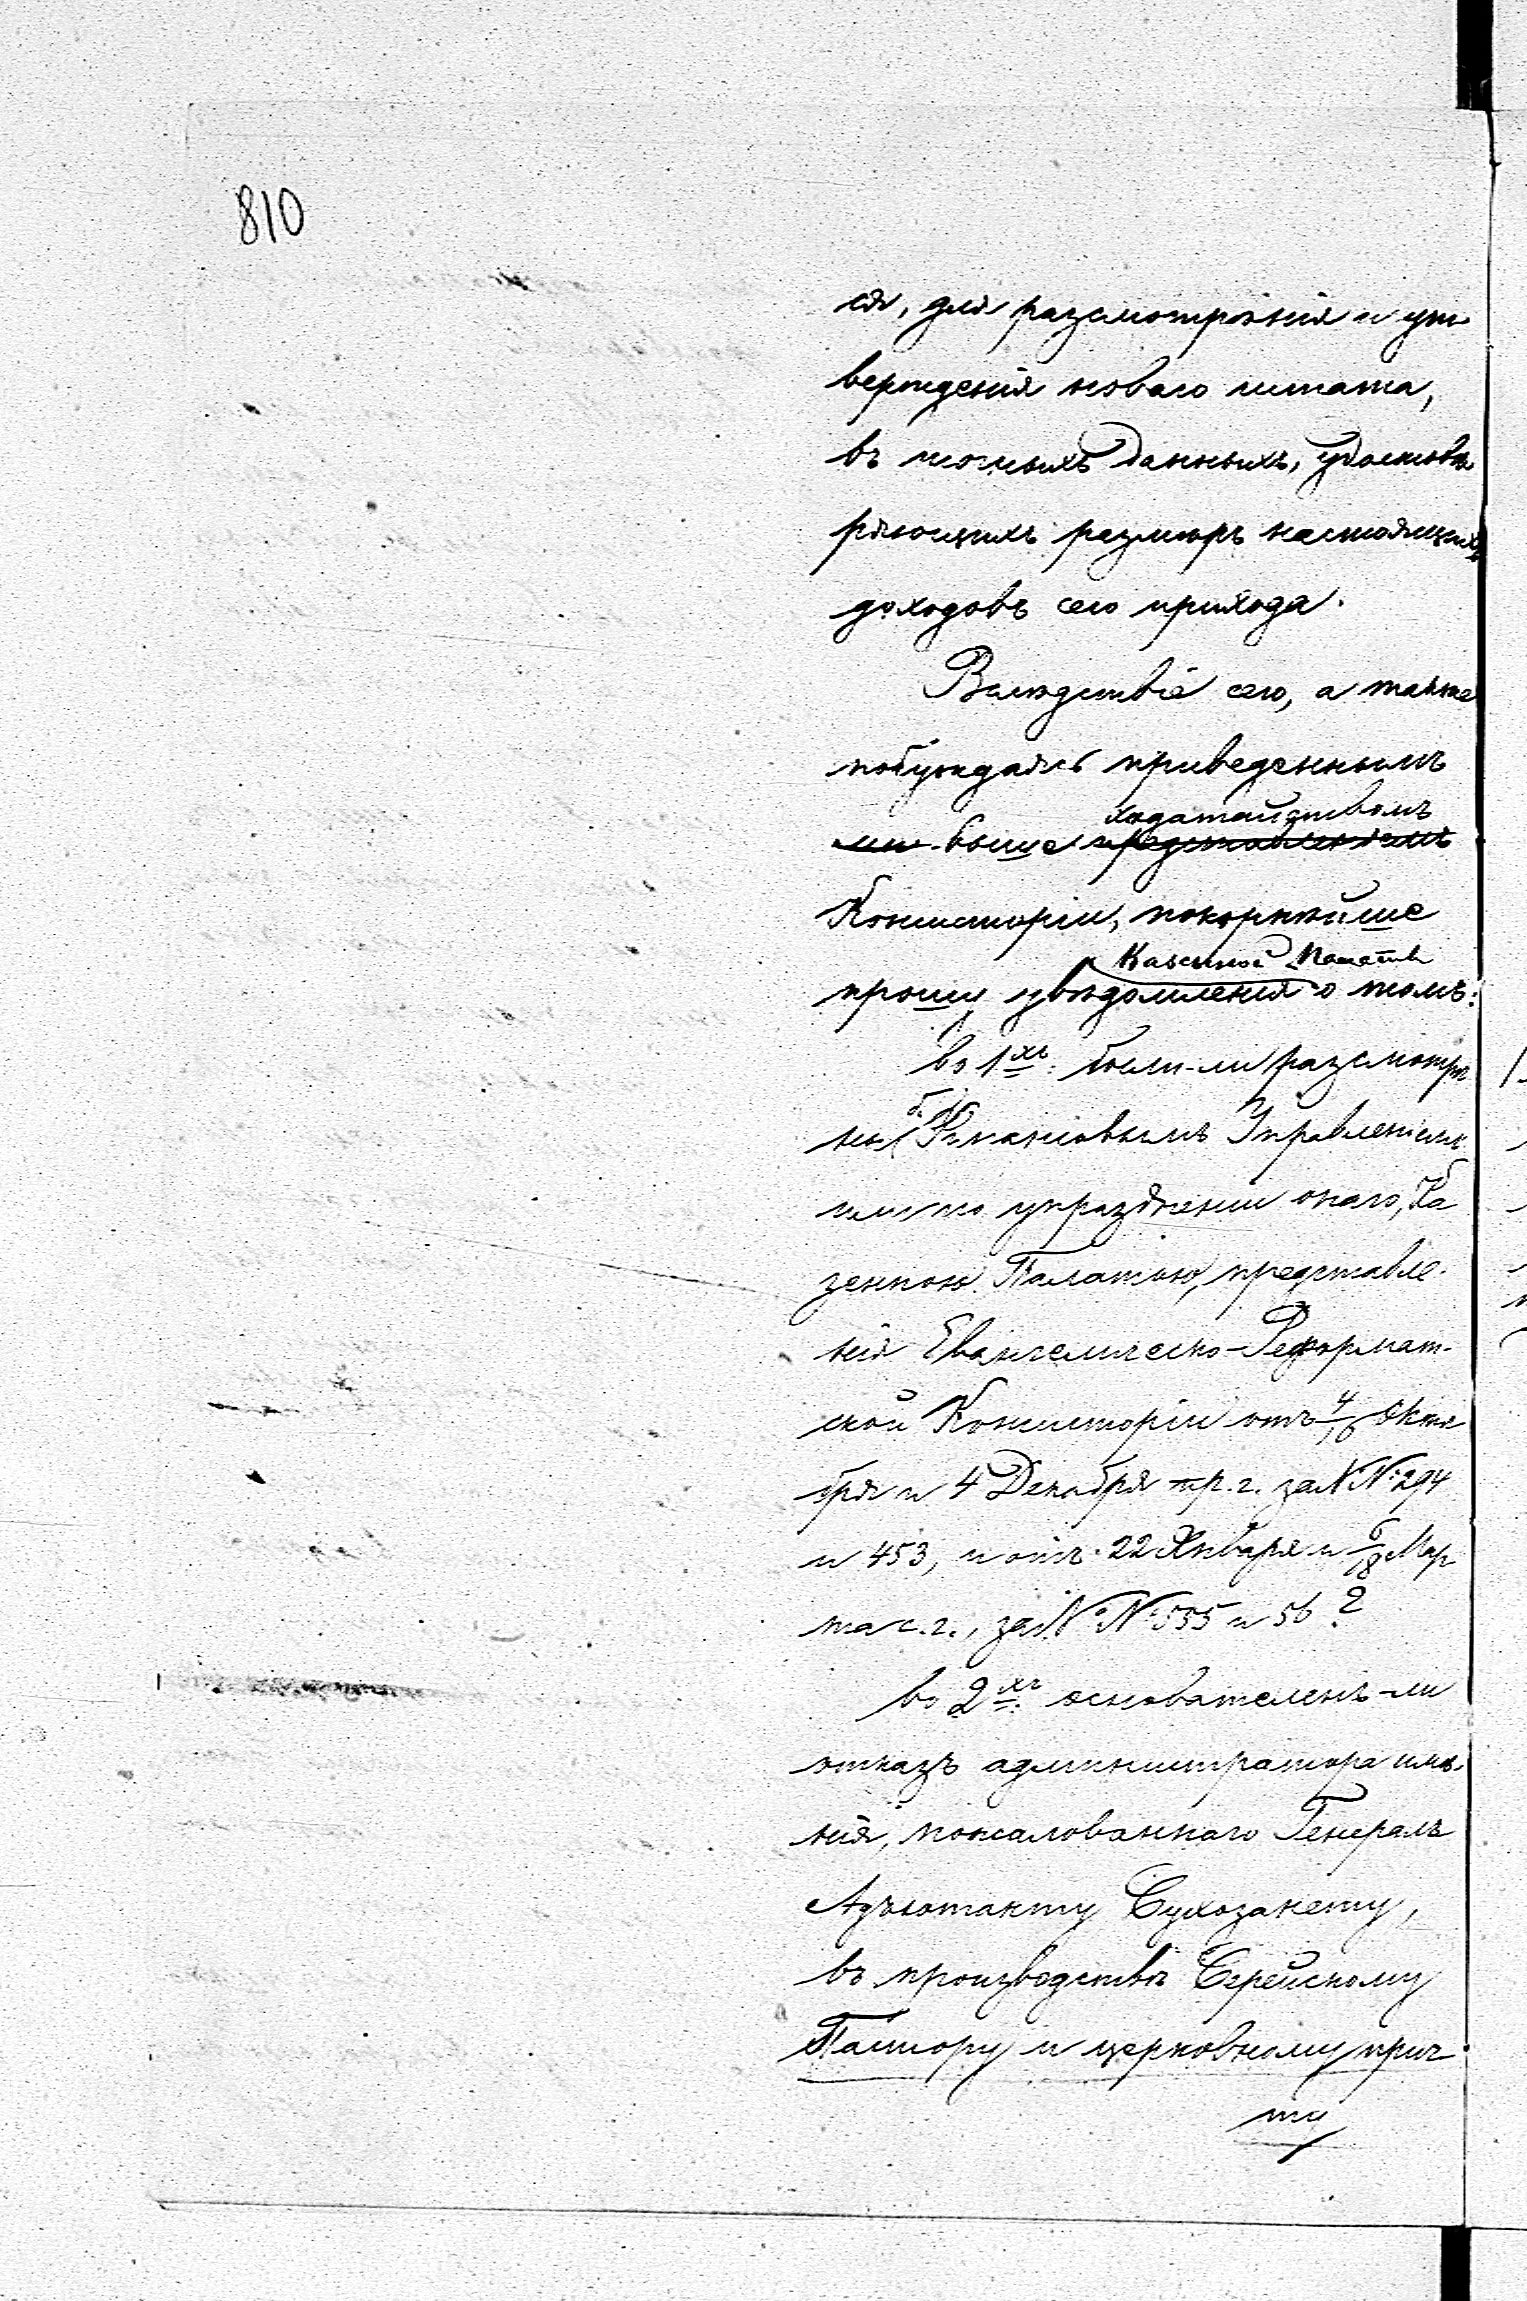 810
ся, для разсмотрѣнія и ут-
вержденія новаго штата,
въ точныхъ данныхъ, удостовѣ
ряющихъ размѣръ настоящихъ
доходовъ сего прихода.
Вслѣдствіе сего, а также
побуждаясь приведеннымъ
ходатайствомъ
выше представленіемъ
Консисторіи, покорнѣйше
Казенной Палаты
прошу увѣдомленія о томъ:
во 1хъ: были-ли разсмотрѣ
б.
ны Финансовымъ Управленіемъ
или по упраздненіи онаго, Ка
зенною Палатою, представле-
нія Евангелическо-Реформат-
ской Консисторіи отъ 4/16 Октя
бря и 4 Декабря пр. г. за №№ 294
и 453, и отъ 22 Января и 6/18 Мар
та с. г., за №№ 535 и 56?
во 2хъ: основателенъ-ли
отказъ администратора имѣ-
нія, пожалованнаго Генералъ
Адъютанту Сухозанету,
въ производствѣ Серейскому
Пастору и церковному прич-
ту